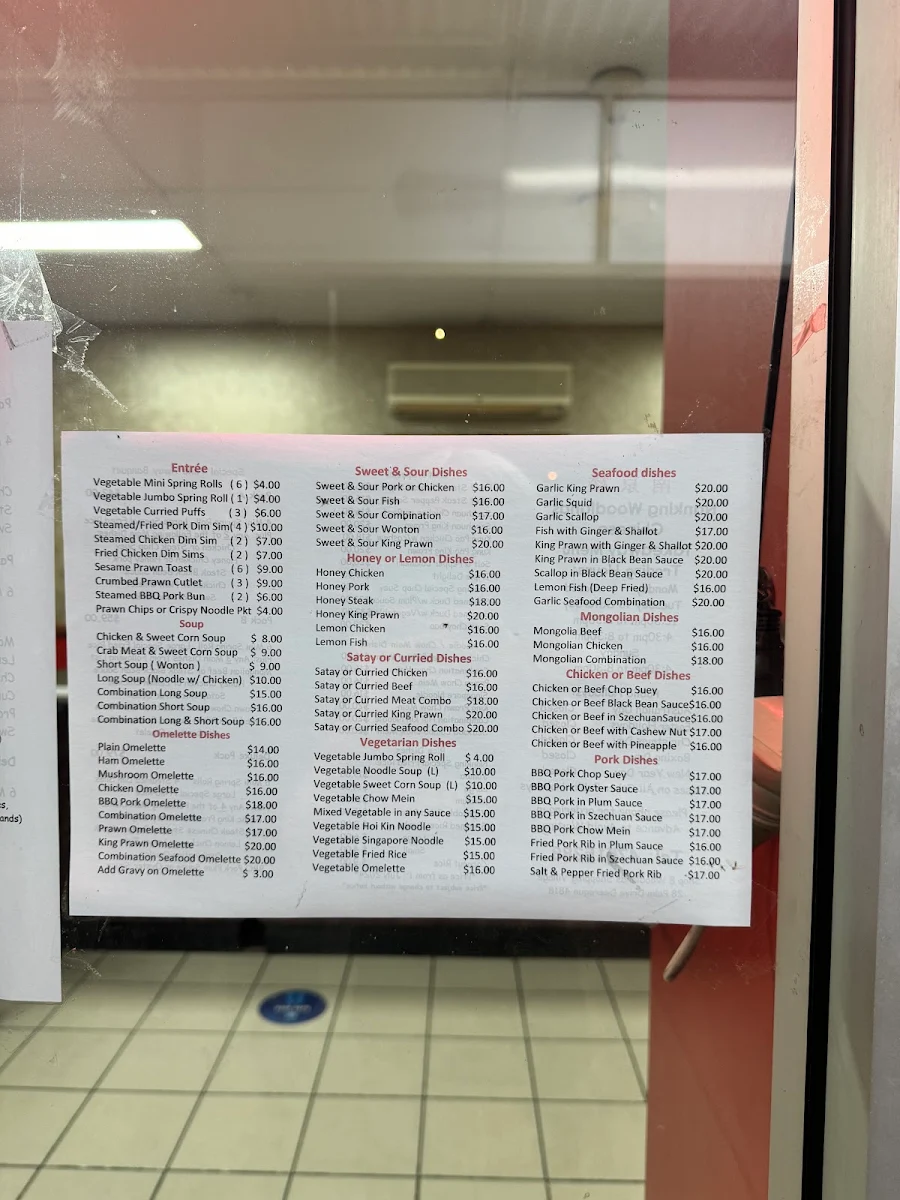 Entrée
Vegetable Mini Spring Rolls ( 6 ) $4.00
Vegetable Jumbo Spring Roll ( 1 ) $4.00
Vegetable Curried Puffs ( 3 ) $6.00
Steamed/Fried Pork Dim Sim( 4 ) $10.00
Steamed Chicken Dim Sim ( 2 ) $7.00
Fried Chicken Dim Sims ( 2 ) $7.00
Sesame Prawn Toast ( 6 ) $9.00
Crumbed Prawn Cutlet ( 3 ) $9.00
Steamed BBQ Pork Bun ( 2 ) $6.00
Prawn Chips or Crispy Noodle Pkt $4.00
Soup
Chicken & Sweet Corn Soup $ 8.00
Crab Meat & Sweet Corn Soup $ 9.00
Short Soup ( Wonton ) $ 9.00
Long Soup (Noodle w/ Chicken) $10.00
Combination Long Soup $15.00
Combination Short Soup $16.00
Combination Long & Short Soup $16.00
Omelette Dishes
Plain Omelette $14.00
Ham Omelette $16.00
Mushroom Omelette $16.00
Chicken Omelette $16.00
BBQ Pork Omelette $18.00
Combination Omelette $17.00
Prawn Omelette $17.00
King Prawn Omelette $20.00
Combination Seafood Omelette $20.00
Add Gravy on Omelette $ 3.00
Sweet & Sour Dishes
Sweet & Sour Pork or Chicken $16.00
Sweet & Sour Fish $16.00
Sweet & Sour Combination $17.00
Sweet & Sour Wonton $16.00
Sweet & Sour King Prawn $20.00
Honey or Lemon Dishes
Honey Chicken $16.00
Honey Pork $16.00
Honey Steak $18.00
Honey King Prawn $20.00
Lemon Chicken $16.00
Lemon Fish $16.00
Satay or Curried Dishes
Satay or Curried Chicken $16.00
Satay or Curried Beef $16.00
Satay or Curried Meat Combo $18.00
Satay or Curried King Prawn $20.00
Satay or Curried Seafood Combo $20.00
Vegetarian Dishes
Vegetable Jumbo Spring Roll $ 4.00
Vegetable Noodle Soup (L) $10.00
Vegetable Sweet Corn Soup (L) $10.00
Vegetable Chow Mein $15.00
Mixed Vegetable in any Sauce $15.00
Vegetable Hoi Kin Noodle $15.00
Vegetable Singapore Noodle $15.00
Vegetable Fried Rice $15.00
Vegetable Omelette $16.00
Seafood dishes
Garlic King Prawn $20.00
Garlic Squid $20.00
Garlic Scallop $20.00
Fish with Ginger & Shallot $17.00
King Prawn with Ginger & Shallot $20.00
King Prawn in Black Bean Sauce $20.00
Scallop in Black Bean Sauce $20.00
Lemon Fish (Deep Fried) $16.00
Garlic Seafood Combination $20.00
Mongolian Dishes
Mongolia Beef $16.00
Mongolian Chicken $16.00
Mongolian Combination $18.00
Chicken or Beef Dishes
Chicken or Beef Chop Suey $16.00
Chicken or Beef Black Bean Sauce$16.00
Chicken or Beef in SzechuanSauce$16.00
Chicken or Beef with Cashew Nut $17.00
Chicken or Beef with Pineapple $16.00
Pork Dishes
BBQ Pork Chop Suey $17.00
BBQ Pork Oyster Sauce $17.00
BBQ Pork in Plum Sauce $17.00
BBQ Pork in Szechuan Sauce $17.00
BBQ Pork Chow Mein $17.00
Fried Pork Rib in Plum Sauce $16.00
Fried Pork Rib in Szechuan Sauce $16.00
Salt & Pepper Fried Pork Rib -$17.00